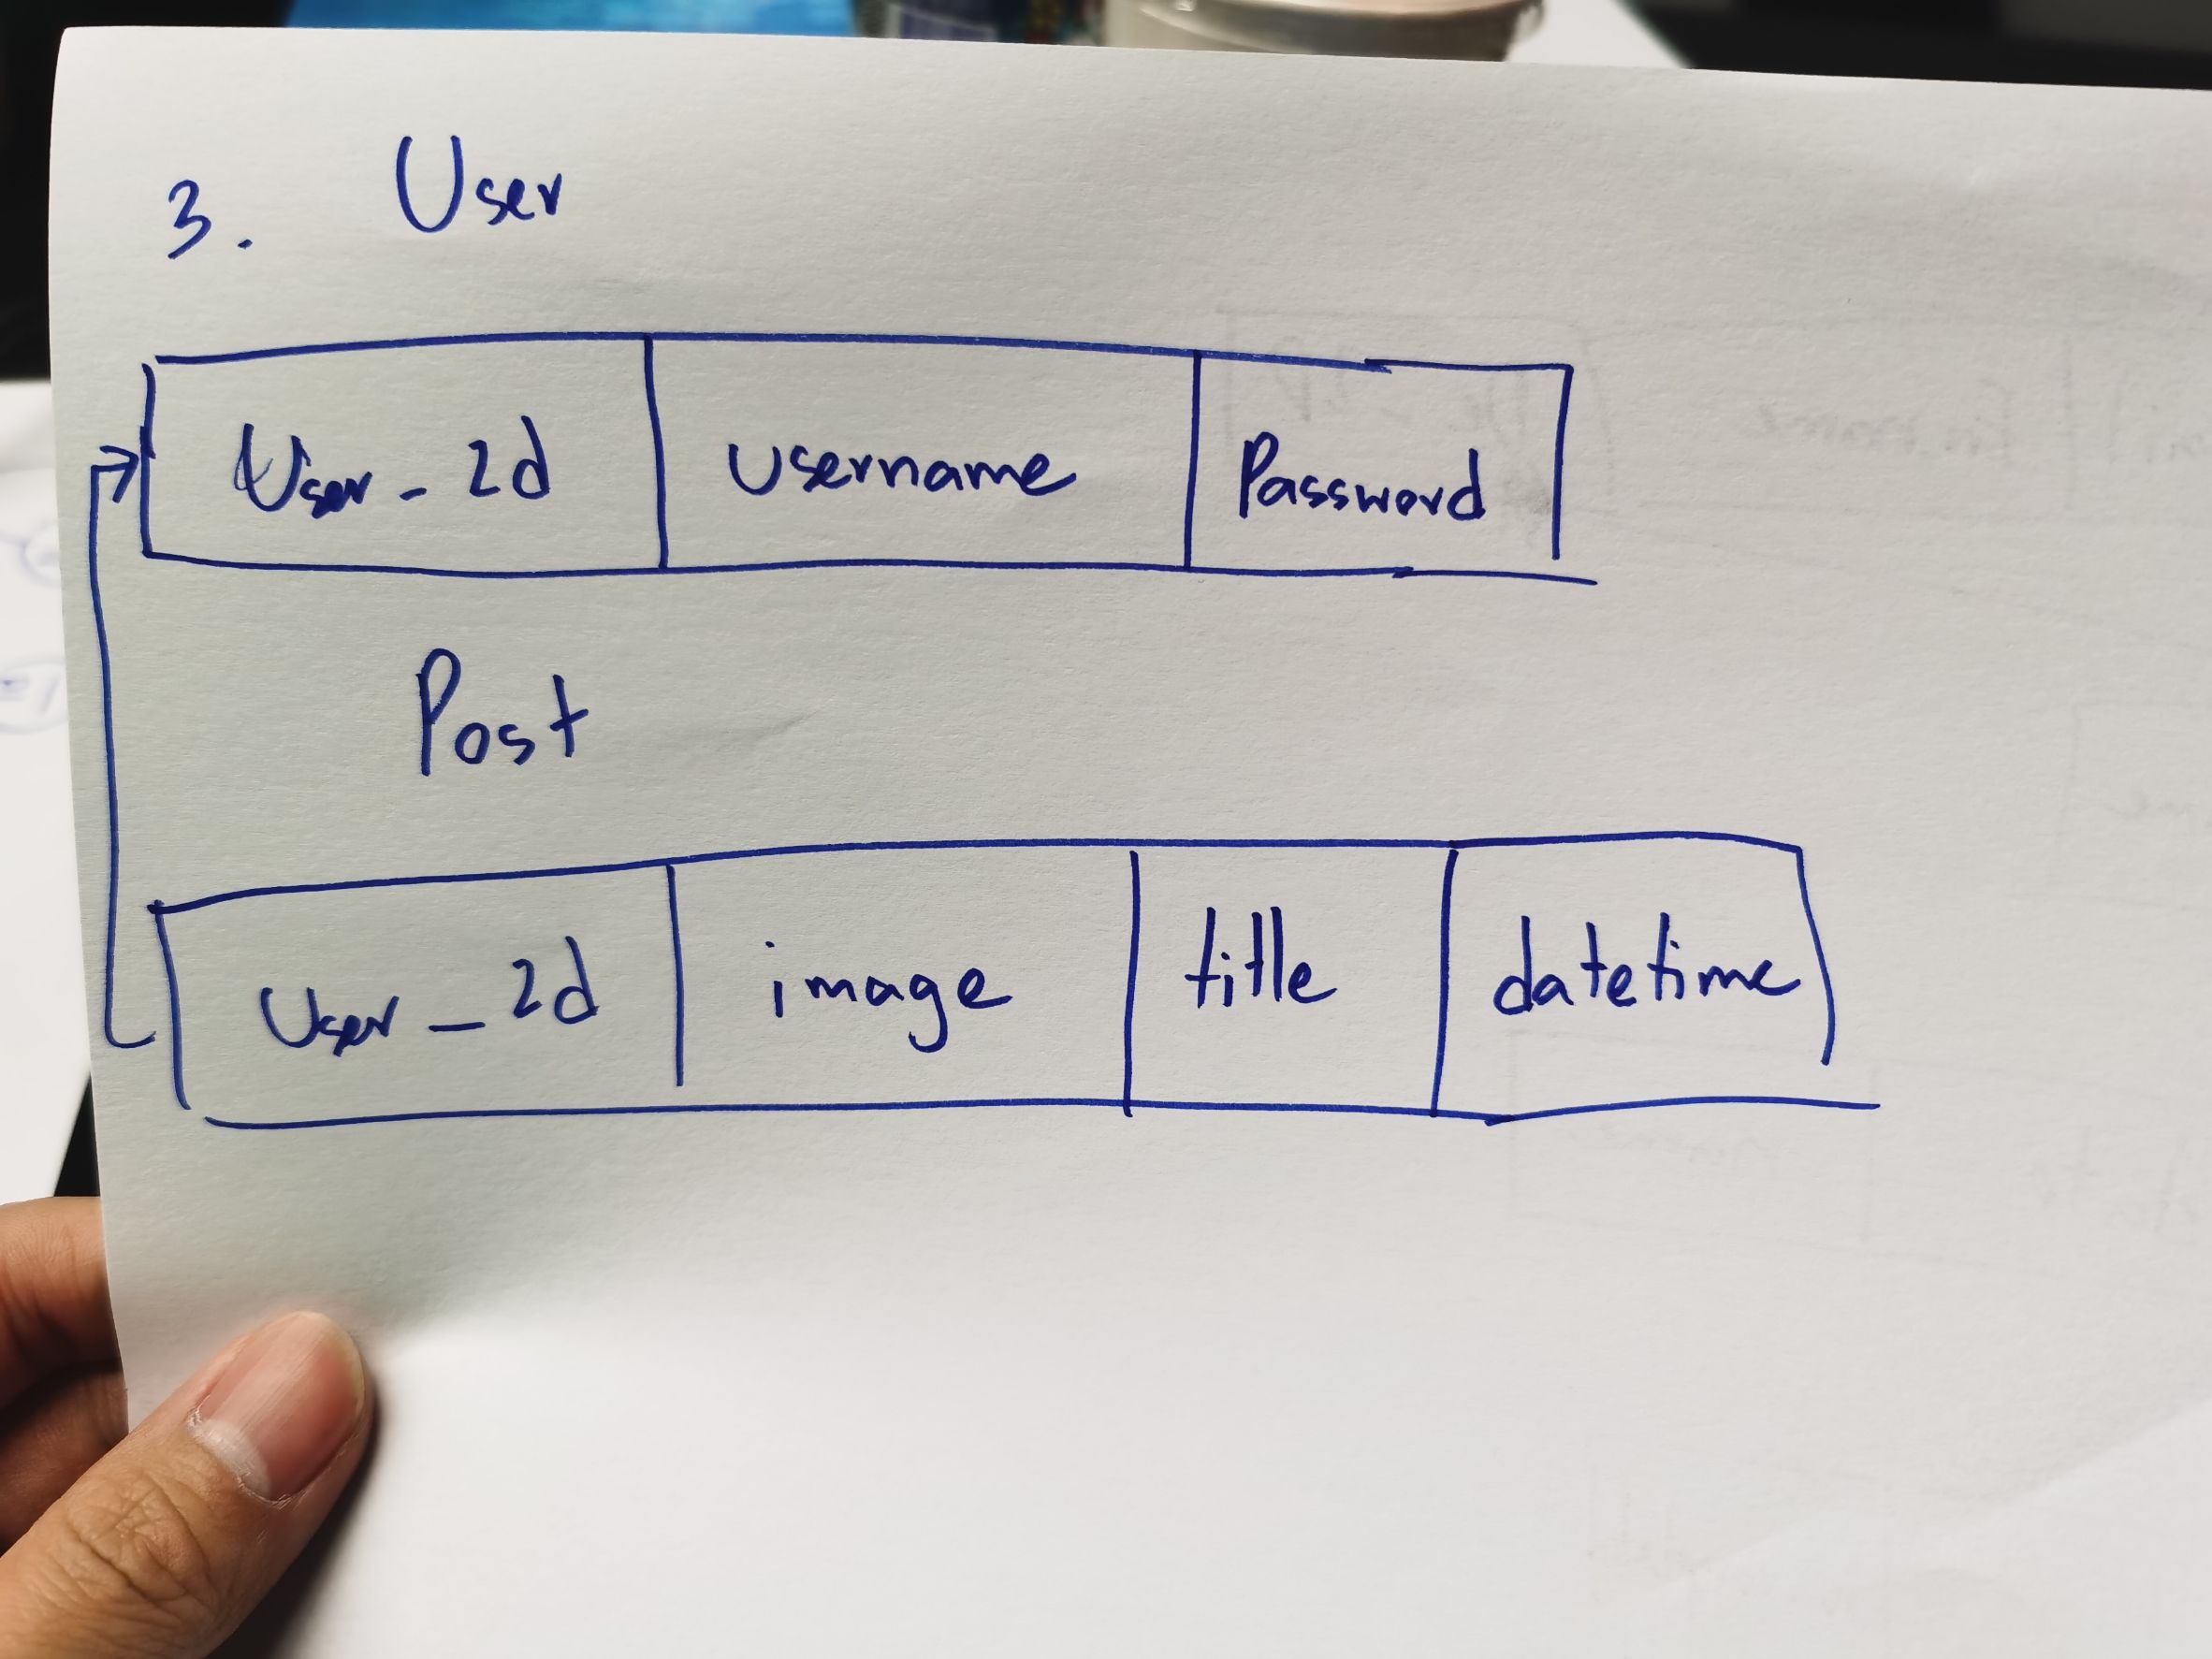 3. User
User_id username Password
Post
User_id image title datetime